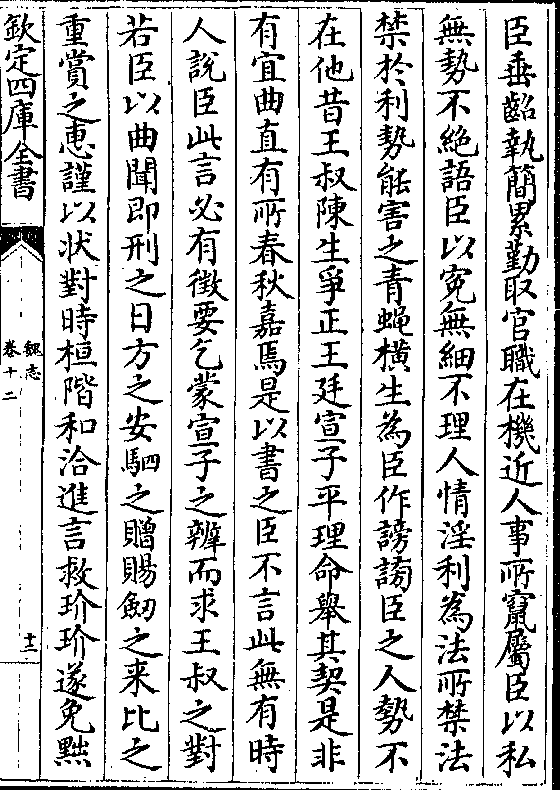 臣垂齠執簡累勤取官職在機近人事所竄屬臣以私
無勢不絶語臣以寃無細不理人情淫利為法所禁法
禁於利勢能害之青蝇橫生為臣作謗謗臣之人勢不
在他昔王叔陳生爭正王廷宣子平理命舉其契是非
有宜曲直有所春秋嘉焉是以書之臣不言此無有時
人説臣此言必有徴要乞蒙宣子之辨而求王叔之對
若臣以曲聞即刑之日方之安駟之贈賜劒之来比之
重賞之恵謹以状對時桓階和洽進言救玠玠遂免黜
欽定四庫全書
魏志
卷十二
十二